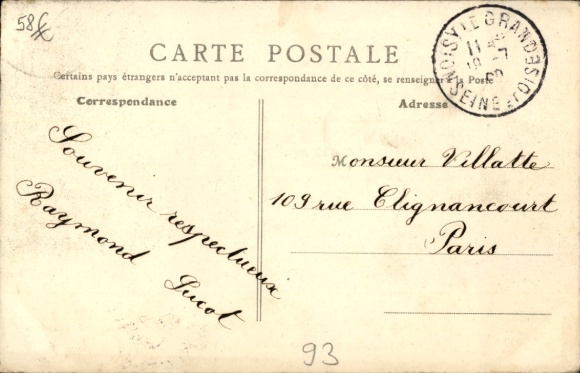 58
CARTE POSTALE
Certains pays étrangers n'acceptant pas la correspondance de ce côté, se renseigner à la Poste
Correspondance
Adresse
NOISY LE GRAND
SEINE ET OISE
Souvenir respectueux
Raymond Lucot
Monsieur Villatte
109 rue Clignancourt
Paris
93